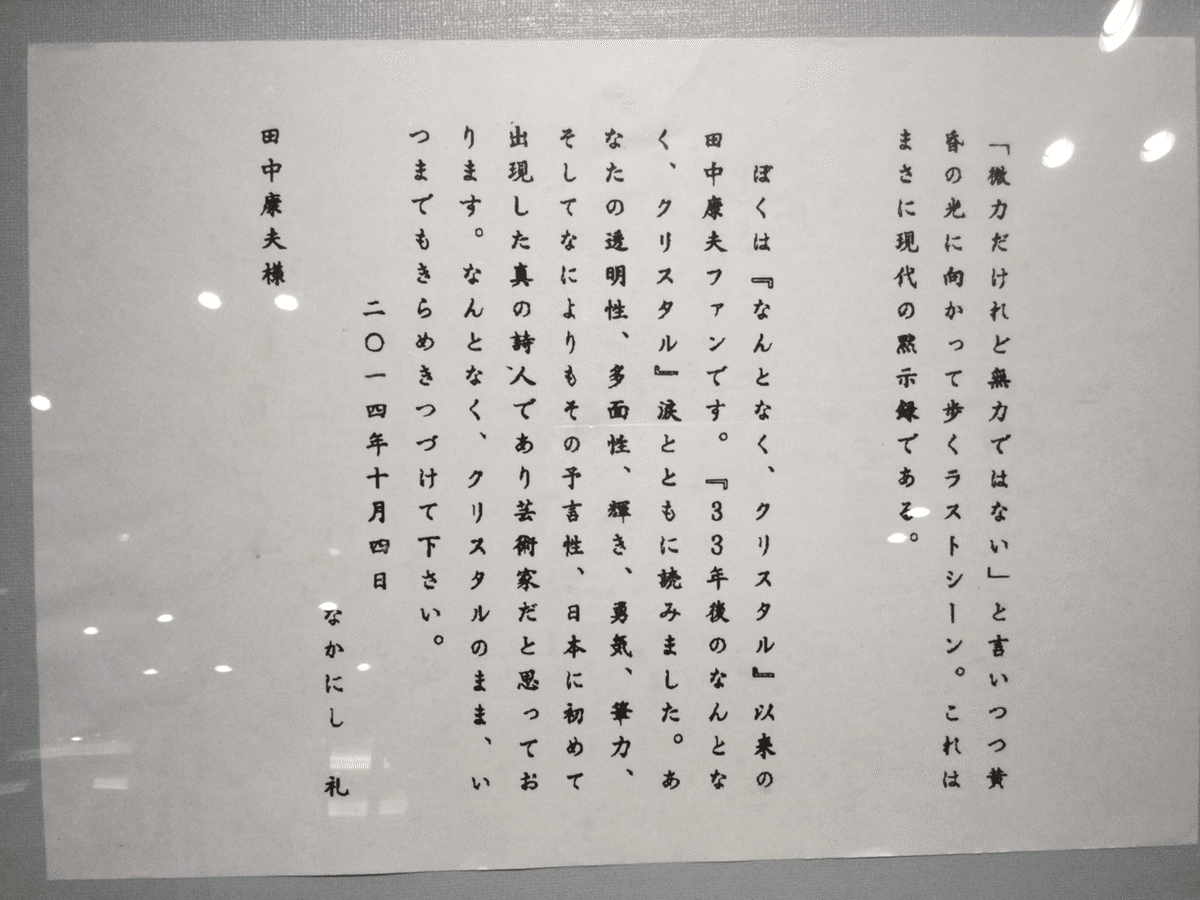 「微力だけれど無力ではない」と言いつつ黄
昏の光に向かって歩くラストシーン。これは
まさに現代の黙示録である。
ぼくは『なんとなく、クリスタル』以来の
田中康夫ファンです。『33年後のなんとな
く、クリスタル』涙とともに読みました。あ
なたの透明性、多面性、輝き、勇気、筆力、
そしてなによりもその予言性、日本に初めて
出現した真の詩人であり芸術家だと思ってお
ります。なんとなく、クリスタルのまま、い
つまでもきらめきつづけて下さい。
二〇一四年十月四日
なかにし 礼
田中康夫様